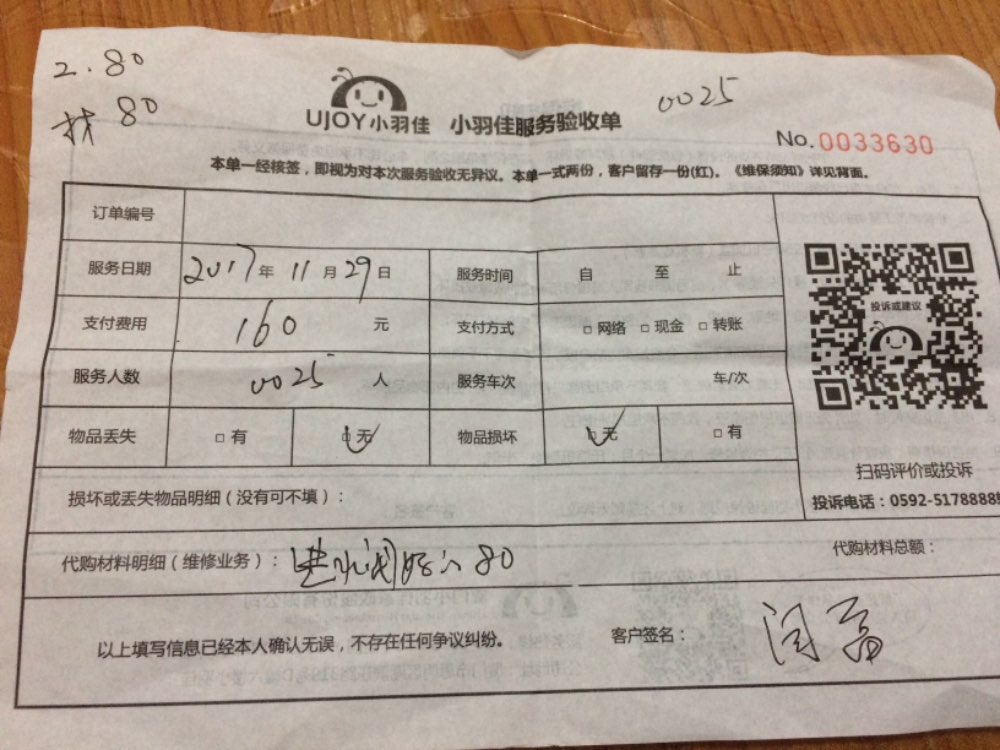 2.80
材 80
UJOY小羽佳 小羽佳服务验收单
0025
No.0033630
本单一经核签，即视为对本次服务验收无异议。本单一式两份，客户留存一份(红)。《维保须知》详见背面。
订单编号
服务日期 2017年 11月29日 服务时间 自 至 止
支付费用 160 元 支付方式 □网络 □现金 □转账
服务人数 0025 人 服务车次 车/次
物品丢失 □有 □无 物品损坏 □无 □有
投诉或建议
扫码评价或投诉
投诉电话：0592-5178888
损坏或丢失物品明细（没有可不填）：
代购材料明细（维修业务）： 80
代购材料总额：
以上填写信息已经本人确认无误，不存在任何争议纠纷。 客户签名：